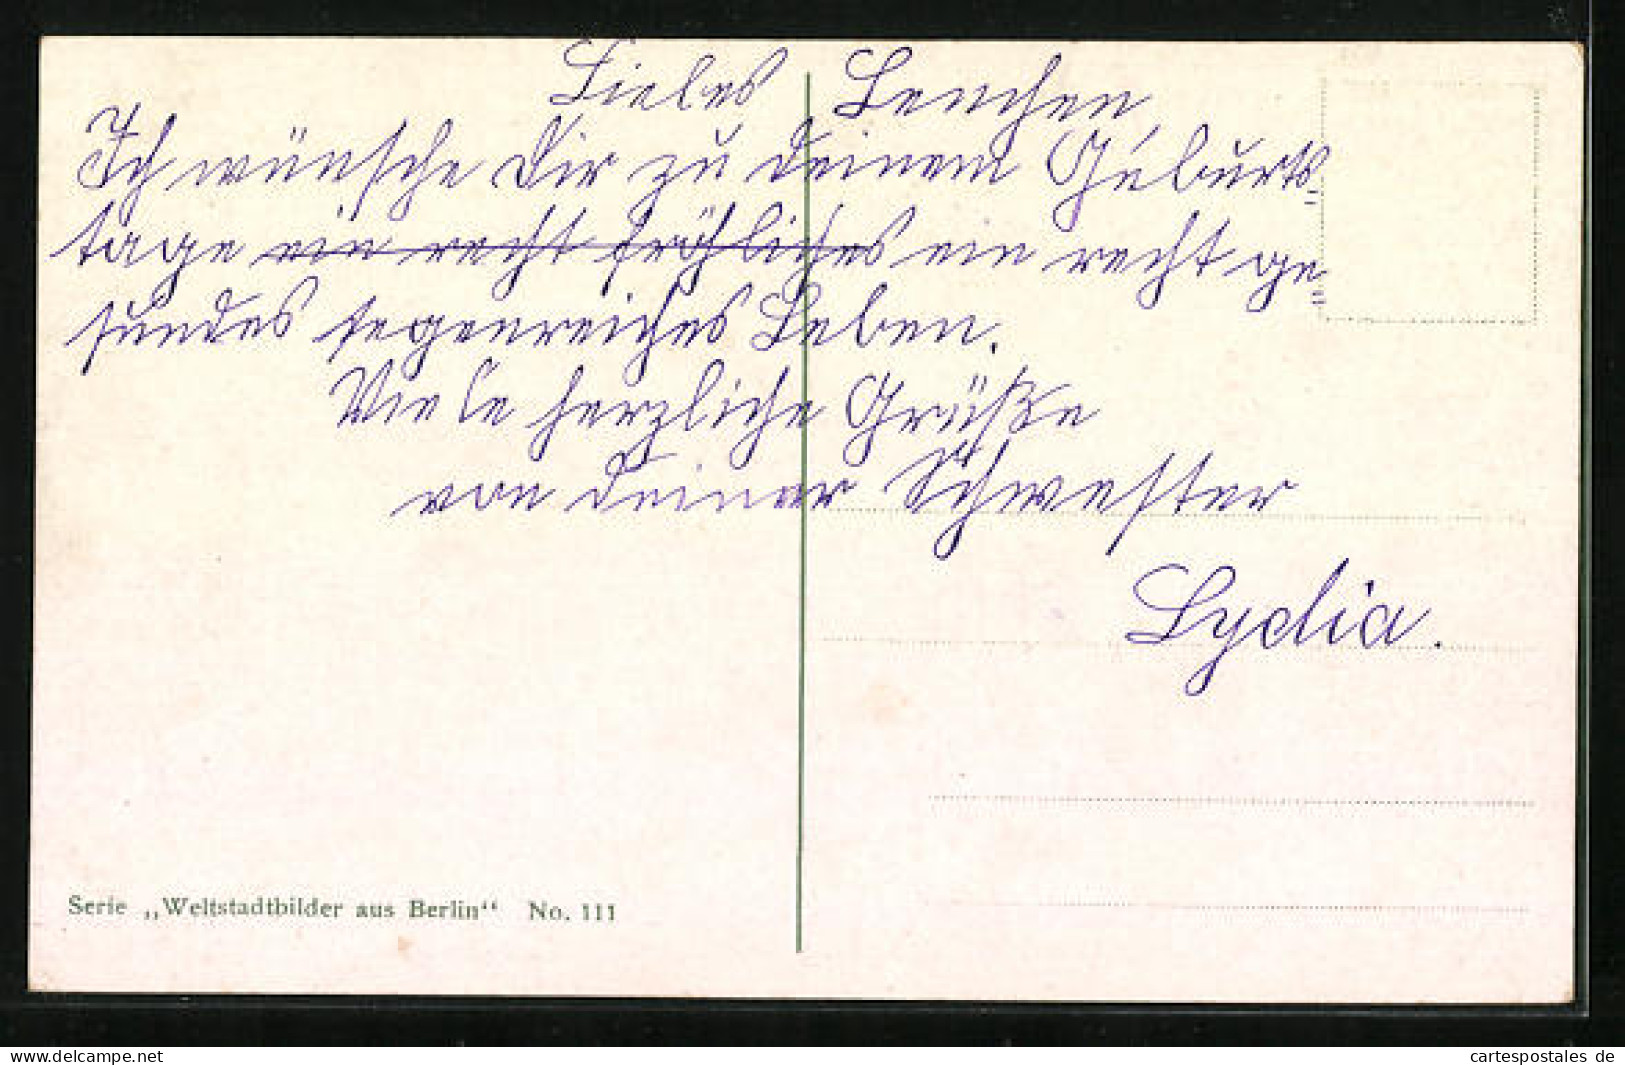 Liebes Lenchen
Ich wünsche Dir zu Deinem Geburts=
tage ein recht fröhliches ein recht ge=
sundes segenreiches Leben.
Viele herzliche Grüße
von Deiner Schwester
Lydia.
Serie „Weltstadtbilder aus Berlin“ No. 111
delcampe.net
cartespostales de